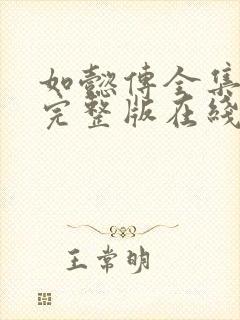 如懿传全集
完整版在线
王常明